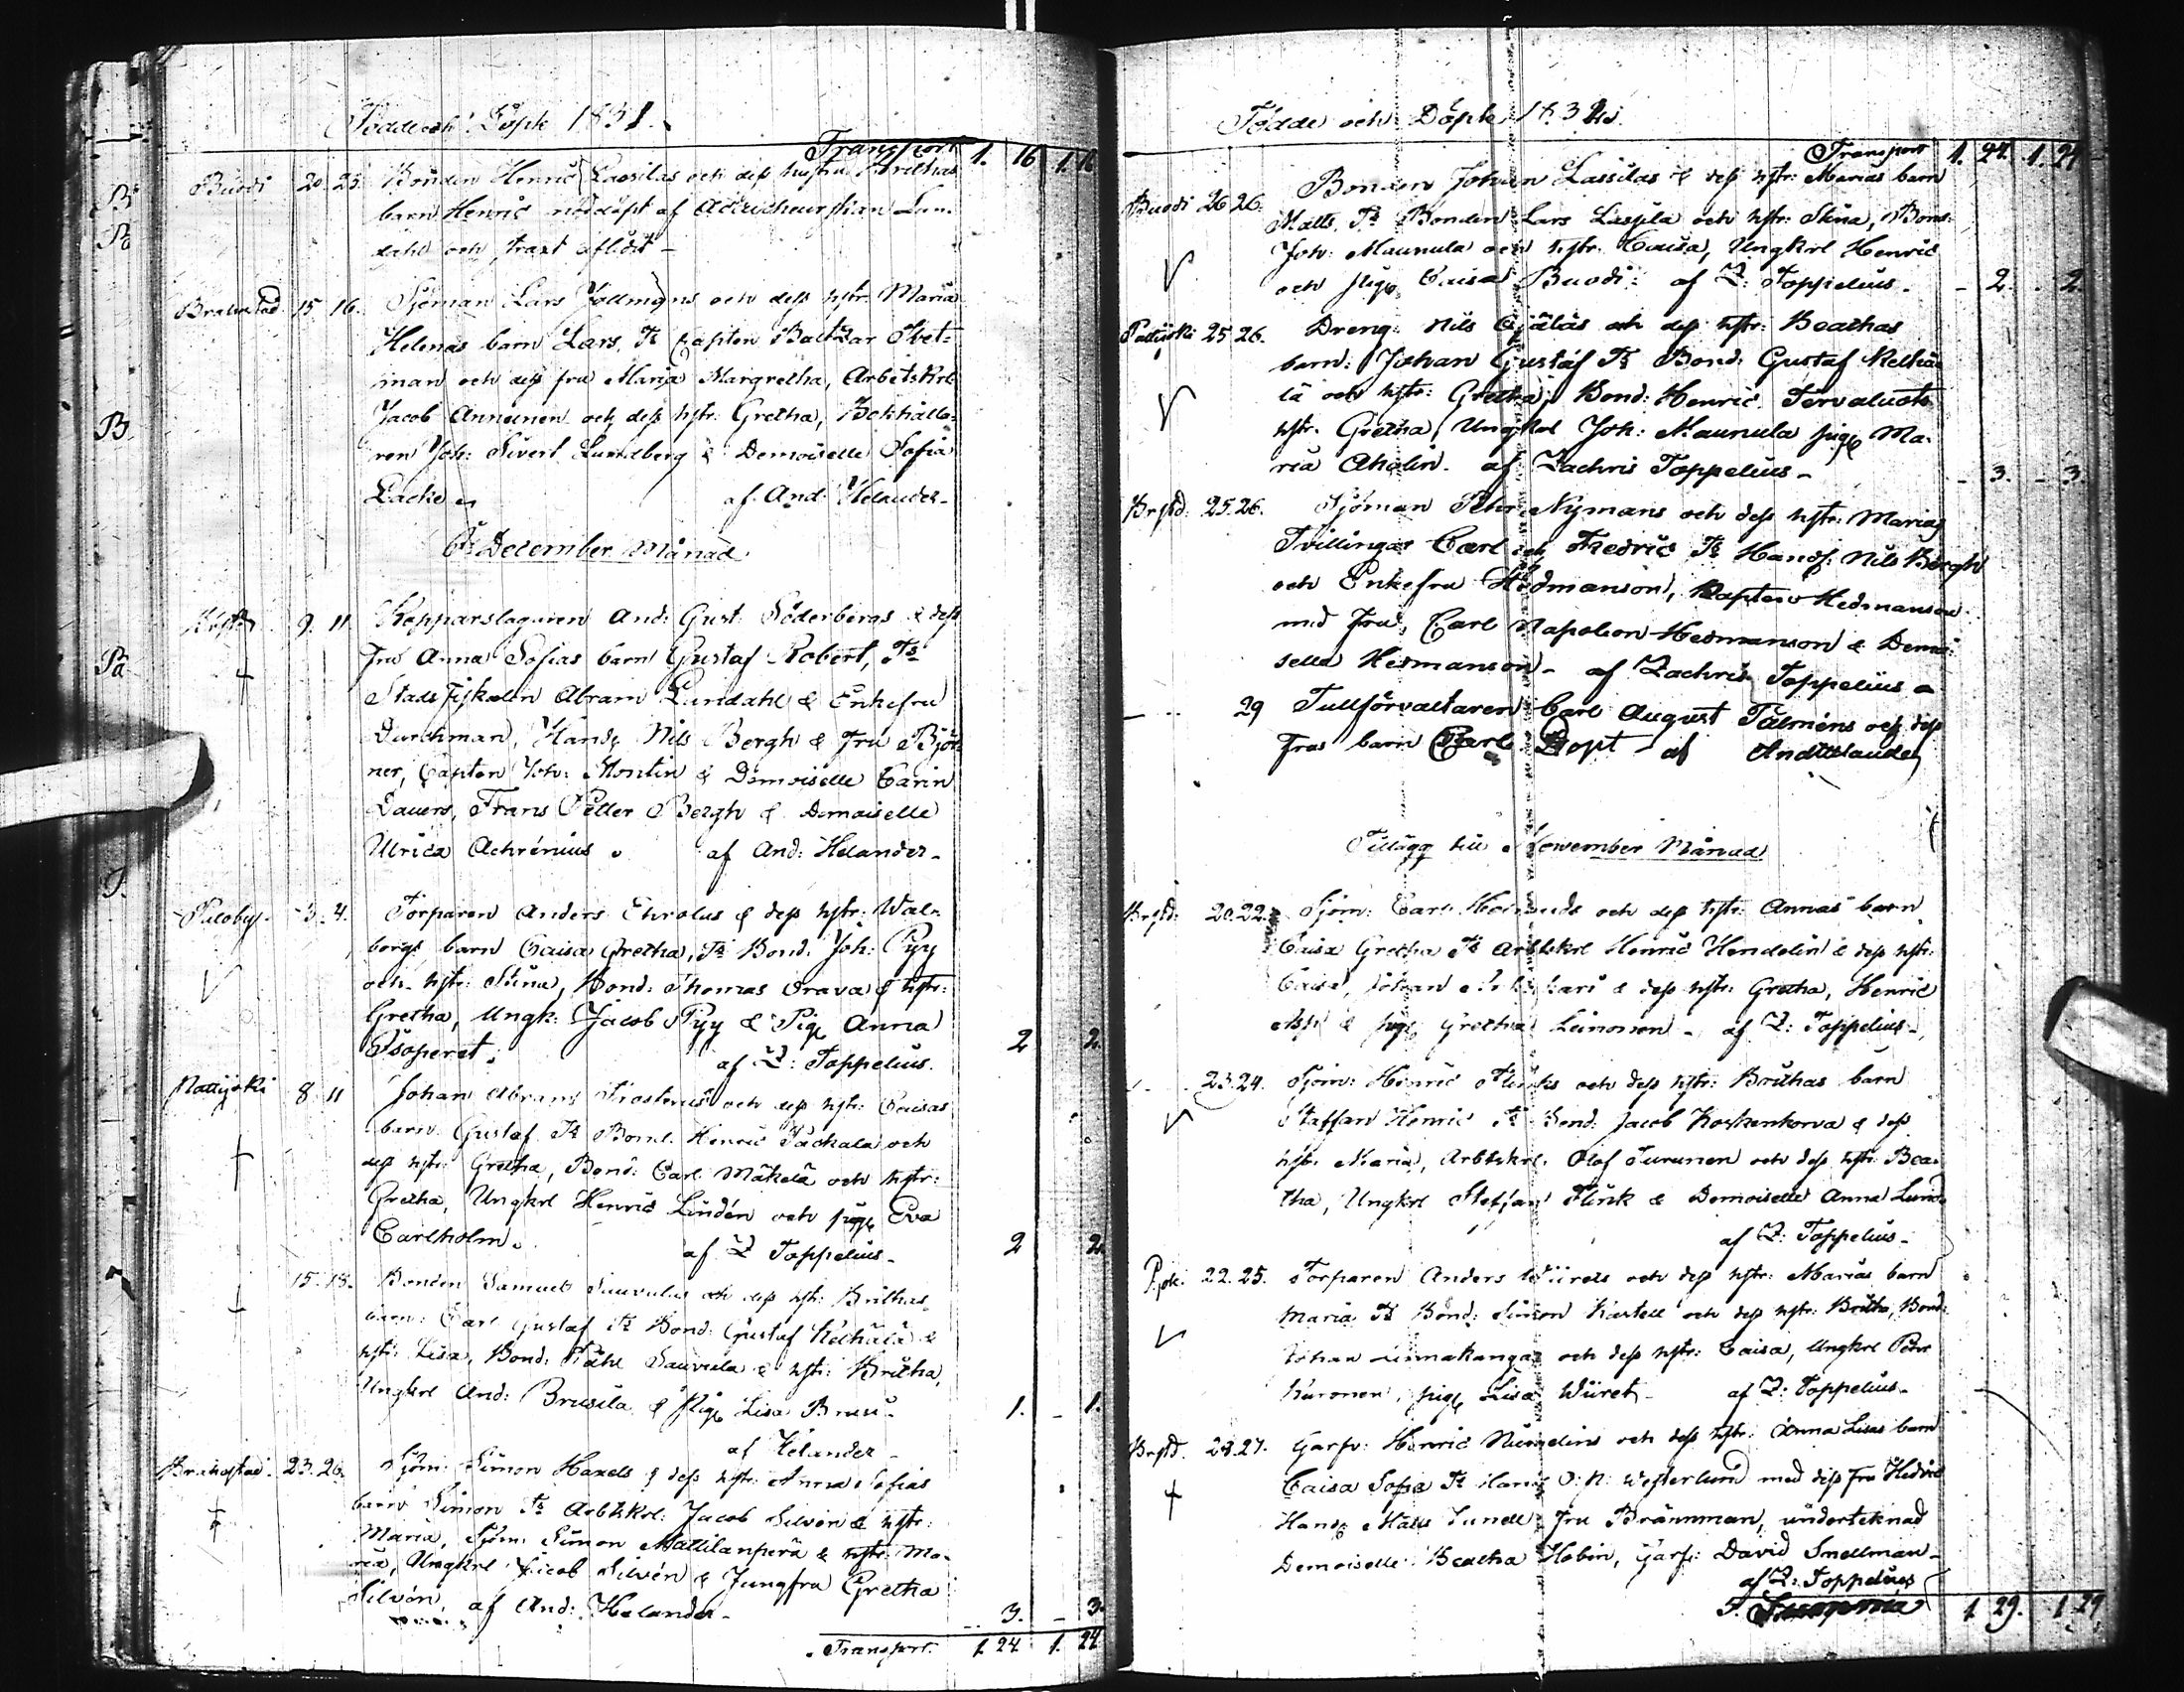 Födde och Döpte 1831.
Transport 1. 16 1. 16
Buodi 20. 25. Bonden Henric Lassilas och dess hustru Brithas
barn Henric nöddöpt af Accucheurskan Lun-
dahl och straxt aflidit -
Brahestad 15 16. Sjöman Lars Jollmans och dess hstr. Maria
Helenas barn Lars, Ts Capten Baltzar
man och dess fru Maria Margretha, Arbetskrl
Jacob Annunen och dess hstr: Gretha, Bokhålla-
ren Joh: Sivert Lundberg & Demoiselle Sofia
Lacke af And: Helander -
December Månad
9. 11 Kopparslagaren And: Gust: Söderbergs & dess
fru Anna Sofias barn Gustaf Robert, Ts
Stads Fiskalen Abram Lundahl & Enkefru
Durchman, Handl Nils Bergh & Fru Björ
ner, Capten Joh: Montin & Demoiselle Carin
Lauers, Frans Petter Bergh & Demoiselle
Ulrica Achrénius af And: Helander -
Saloby 3. 4. Torparen Anders Ehrolas & dess hstr: Wal-
borgs barn Caisa Gretha, Ts Bond: Joh: Pyy
och hstr: Stina, Bond: Thomas Orava & hstr:
Gretha, Ungk: Jacob Pyy & Pig Anna
Isoperet. af Z: Toppelius. 2 2
Pattijoki 8. 11 Johan Abrams och dess hstr: Caisas
barn Gustaf Ts Bond: Henric Packala och
dess hstr: Gretha, Bond: Carl Mäkelä och hstr:
Gretha, Ungkrl Henric Lindén och pig Eva
Carlholm. af Z Toppelius - 2 2.
15. 18. Bonden Samuel Sauvulas och dess hstr: Brithas
barn: Carl Gustaf Ts Bond: Gustaf Keltälä &
hstr: Lisa, Bond: Påhl Sauvula & hstr: Britha,
Ungkrl And: Brusila & Pig Lisa Brusi - 1. - 1.
af Helander -
Brahestad. 23. 26. Sjöm: Simon Haxels & dess hstr: Anna Sofias
barn Simon Ts Arbtskrl: Jacob Silvén & hstr:
Maria, Sjöm: Simon Mattilanperä & hstr: Ma-
ria, Ungkrl Jacob Silvén & Jungfru Gretha
Silvén, af And: Helander - 3. - 3.
Transport. 1. 24 1. 24
Födde och Döpte 183
Transport 1. 24. 1. 24
Buodi 26 26. Bonden Johan Lassilas & dess hstr: Marias barn
Matts, Ts Bonden Lars Lassila och hstr: Stina, Bond:
Joh: Maunula och hstr: Caisa, Ungkrl Henric
och pig Caisa Buodi: af Z: Toppelius. - 2. 2
Pattijoki 25 26. Dreng: Nils och dess hstr: Beathas
barn: Johan Gustaf Ts Bond: Gustaf Keltä-
lä och hstr: Gretha, Bond: Henric Tervaluoto
hstr: Gretha, Ungkrl Joh: Maunula pig Ma-
ria Aholin. af Zachris Toppelius - - 3. - 3.
Brstd: 25. 26. Sjöman Pehr Nymans och dess hstr: Marias
Tvillingar Carl och Fredric Ts Handl: Nils Bergh
och Enkefru Hedmanson, Kapten Hedmanson
med Fru, Carl Napoleon Hedmanson & Demoi
selle Hedmanson - af Zachris Toppelius
29 Tullförvaltaren Carl August Talméns och dess
Frus barn Carl Döpt af And Helander
Tillägg till November Månad
Brstd: 20. 22. Sjöm: Carl och dess hstr: Annas barn
Caisa Gretha Ts Arbtskrl Henric Hendolin & dess hstr:
Caisa, Johan & dess hstr: Gretha, Henric
& pig Gretha Leinonen - af Z: Toppelius -
23. 24. Sjöm: Henric Flinks och dess hstr: Brithas barn
Staffan Henric Ts Bond: Jacob Koskenkorva & dess
hstr: Maria, Arbtskrl: Olof Turunen och dess hstr: Bea-
tha, Ungkrl Steffan Flink & Demoiselle Anna Lund
af Z: Toppelius -
Pjoki. 22. 25. Torparen Anders Wiirets och dess hstr: Marias barn
Maria Ts Bond: Simon Kastell och dess hstr: Britha, Bond:
Johan Linnakangas och dess hstr: Caisa, Ungkrl Petter
Huronen, pig Lisa Wiiret - af Z: Toppelius -
Brstd. 24. 27. Garfv: Henric Numelins och dess hstr: Anna Lisas barn
Caisa Sofia Ts Handl O: N: Westerlund med dess Fru Hedvig
Handl Matts Sunell Fru Brännman, underteknad
Demoiselle Beatha Hobin, Garf: David Snellman -
af Z: Toppelius
1 29. 1 29